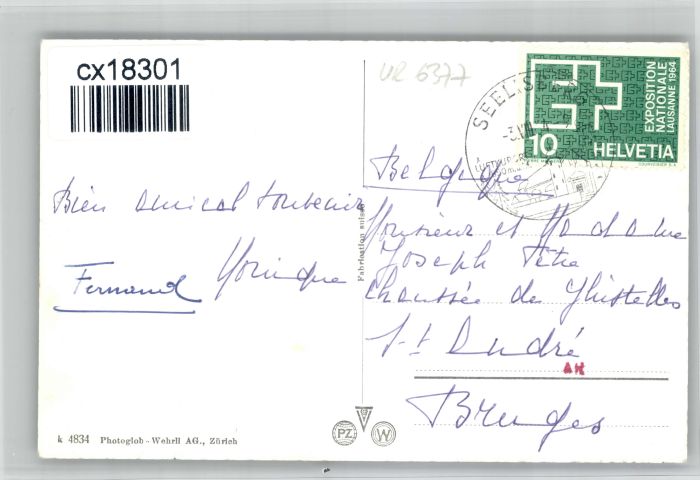 cx18301
UR 6377
SEELISBERG
-3.VIII.
LUFTKURORT
EXPOSITION
NATIONALE
LAUSANNE 1964
10 HELVETIA
COURVOISIER S.A.
Belgique
Bien amical souvenir
Fernand Monique
Fabrication suisse
Monsieur et Madame
Joseph
Chaussée de Ghistelles
St André
AH
Bruges
PZ W
k 4834 Photoglob-Wehrli AG., Zürich